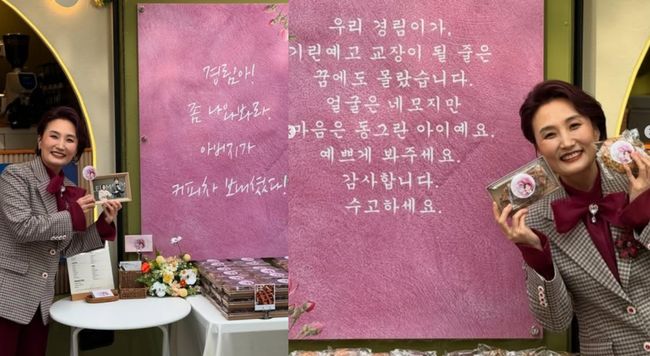 경림아!
좀 나와봐라.
아버지가
커피차 보내셨다!
우리 경림이가,
기린예고 교장이 될 줄은
꿈에도 몰랐습니다.
얼굴은 네모지만
마음은 동그란 아이예요.
예쁘게 봐주세요.
감사합니다.
수고하세요.